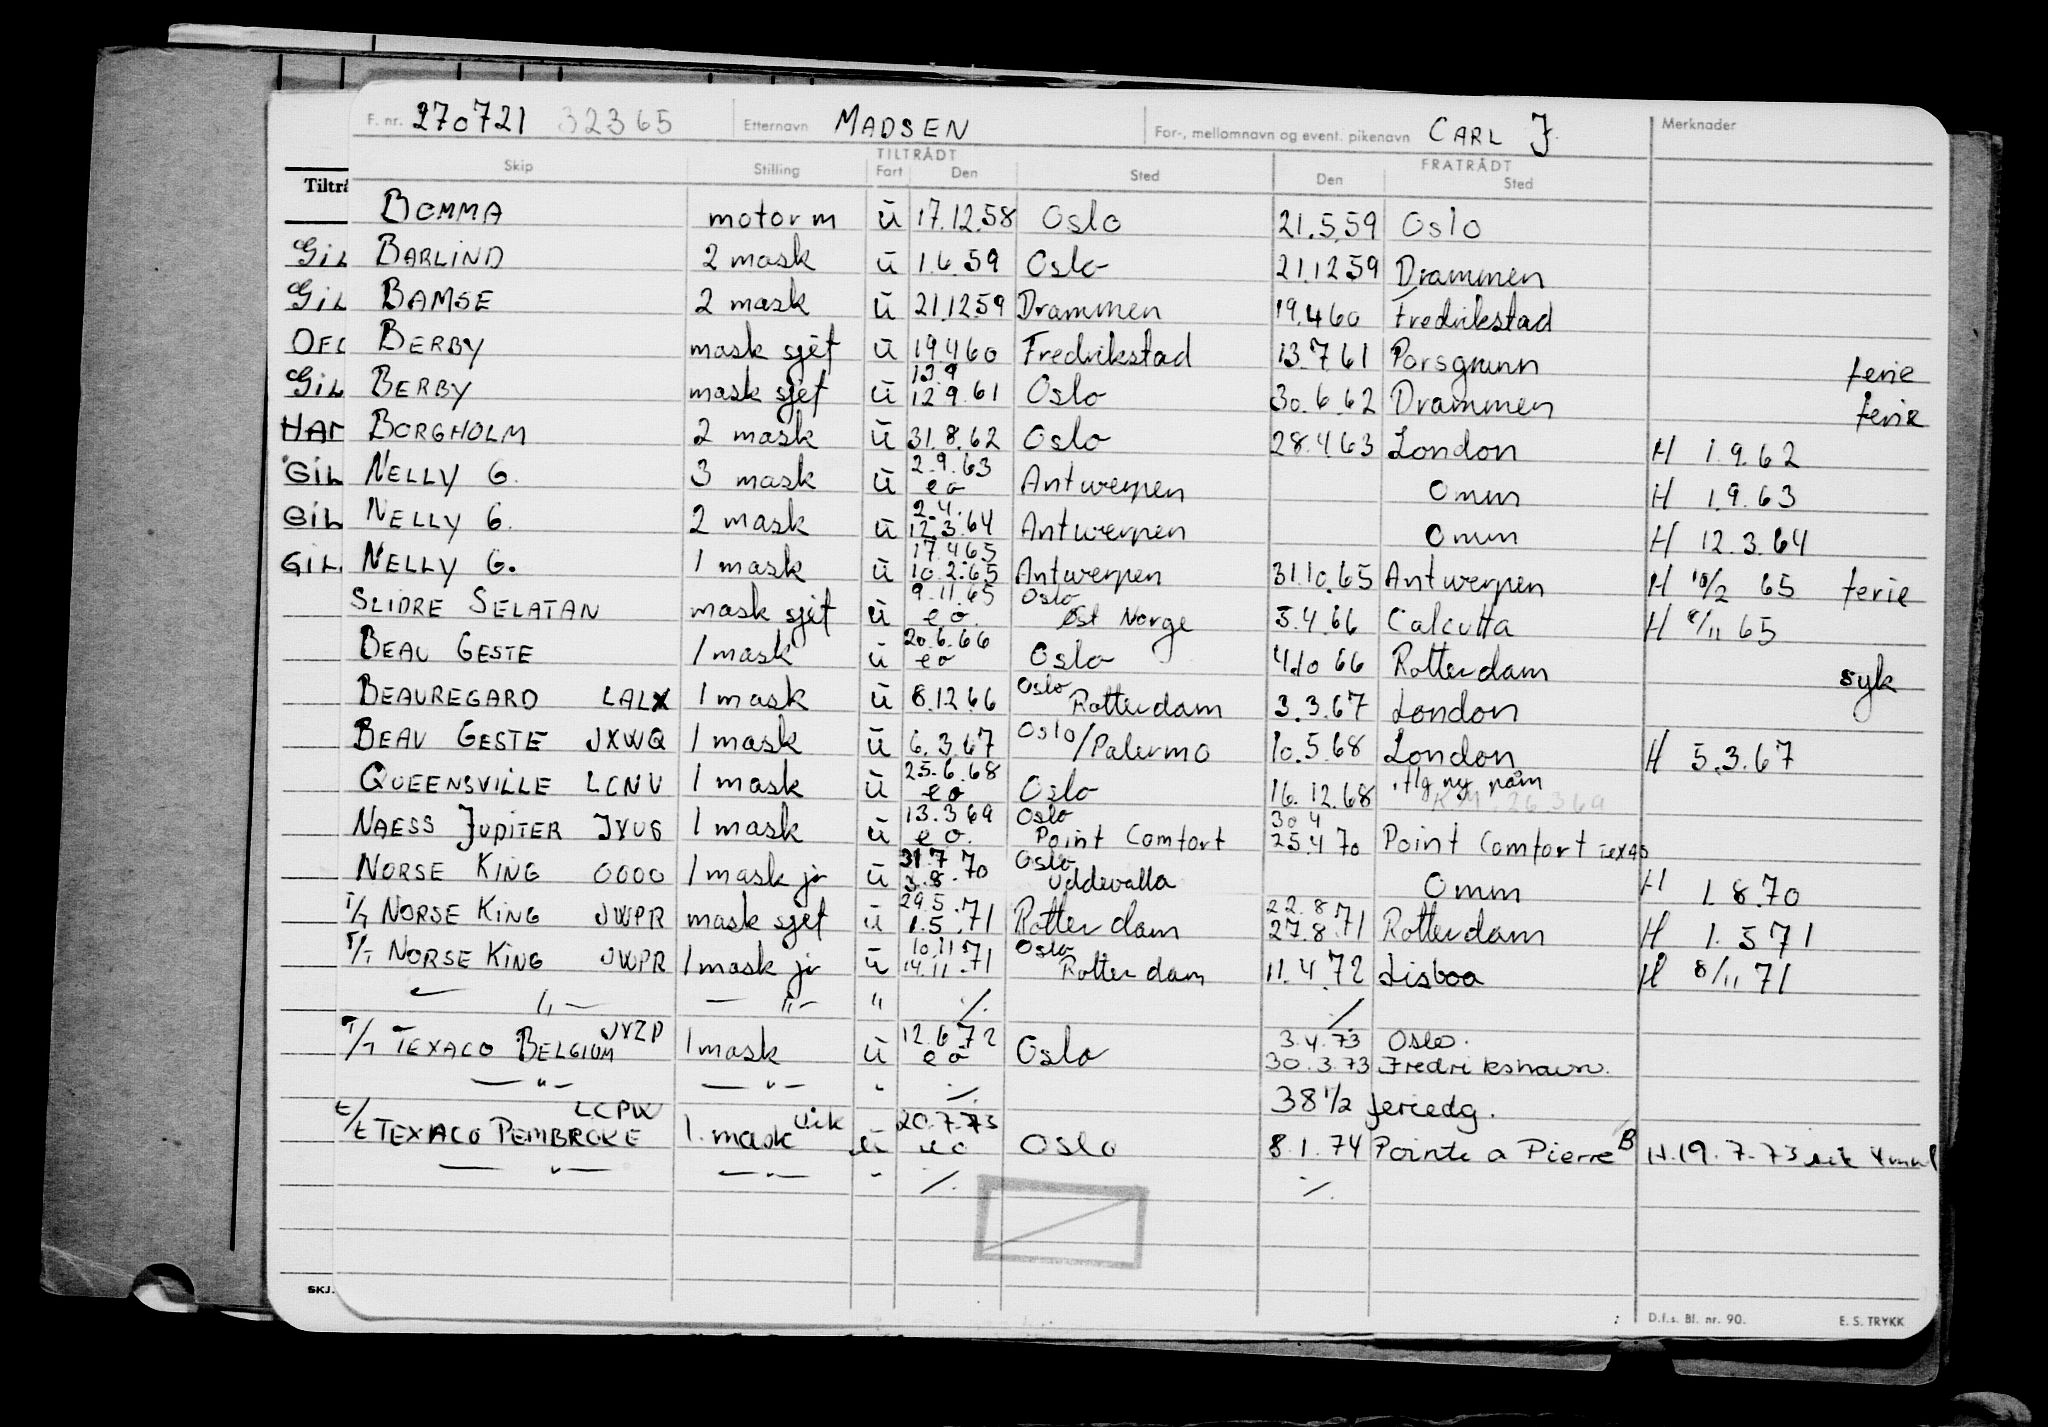 F. nr. 270721 32365 Etternavn MADSEN For-, mellomnavn og event. pikenavn CARL J. Merknader
TILTRÅDT FRATRÅDT
Skip Stilling Fart Den Sted Den Sted
Tiltrå
BOMMA motorm u 17.12.58 Oslo 21.5.59 Oslo
GiL BARLIND 2 mask u 1.6.59 Oslo 21.12.59 Drammen
GiL BAMSE 2 mask u 21.12.59 Drammen 19.4.60 Fredrikstad
BERBY mask sjef u 19.4.60 Fredrikstad 13.7.61 Porsgrunn ferie
GiL BERBY mask sjef u 13.9 12.9.61 Oslo 30.6.62 Drammen ferie
BORGHOLM 2 mask u 31.8.62 Oslo 28.4.63 London H 1.9.62
GIL NELLY G. 3 mask u 2.9.63 eo Antwerpen Omm H 1.9.63
GIL NELLY G. 2 mask u 2.4. 12.3.64 Antwerpen Omm H 12.3.64
GIL NELLY G. 1 mask u 17.4.65 10.2.65 Antwerpen 31.10.65 Antwerpen H 10/2 65 ferie
SLIDRE SELATAN mask sjef u 9.11.65 eo. Oslo Øst Norge 5.4.66 Calcutta H 8/11 65
BEAU GESTE 1 mask u 20.6.66 eo Oslo 4.10 66 Rotterdam syk
BEAUREGARD LALX 1 mask u 8.12.66 Oslo Rotterdam 3.3.67 London
BEAU GESTE JXWQ 1 mask u 6.3.67 Oslo/Palermo 10.5.68 London H 5.3.67
QUEENSVILLE LCNV 1 mask u 25.6.68 eo Oslo 16.12.68 flg ny påm 26369
NAESS JUPITER JVUG 1 mask u 13.3.69 eo. Oslo Point Comfort 30 4 25.4 70 Point Comfort TEXAS
NORSE KING OOOO 1 mask jr u 31.7.70 3.8. Oslo Uddevalla Omm H 1.8.70
T/T NORSE KING JWPR mask sjef u 29.5.71 1.5.71 Rotterdam 22.8.71 27.8.71 Rotterdam H 1.5 71
T/T NORSE KING JWPR 1 mask jr u 10.11.71 14.11.71 Oslo Rotterdam 11.4.72 Lisboa H 8/11 71
— „ — — „ — „ ./. ./.
T/T TEXACO BELGIUM JVZP 1 mask u 12.6.72 eo Oslo 3.4.73 Oslo.
30.3.73 Fredrikshavn.
— „ — — „ — „ ./. 38 1/2 feriedg.
t/t TEXACO PEMBROKE LCPW 1. mask vik u 20.7.73 eo Oslo 8.1.74 Pointe a Pierre B H.19.7.73
— „ — — „ — „ ./. ./.
SKJ. D.f.s. Bl. nr. 90. E. S. TRYKK